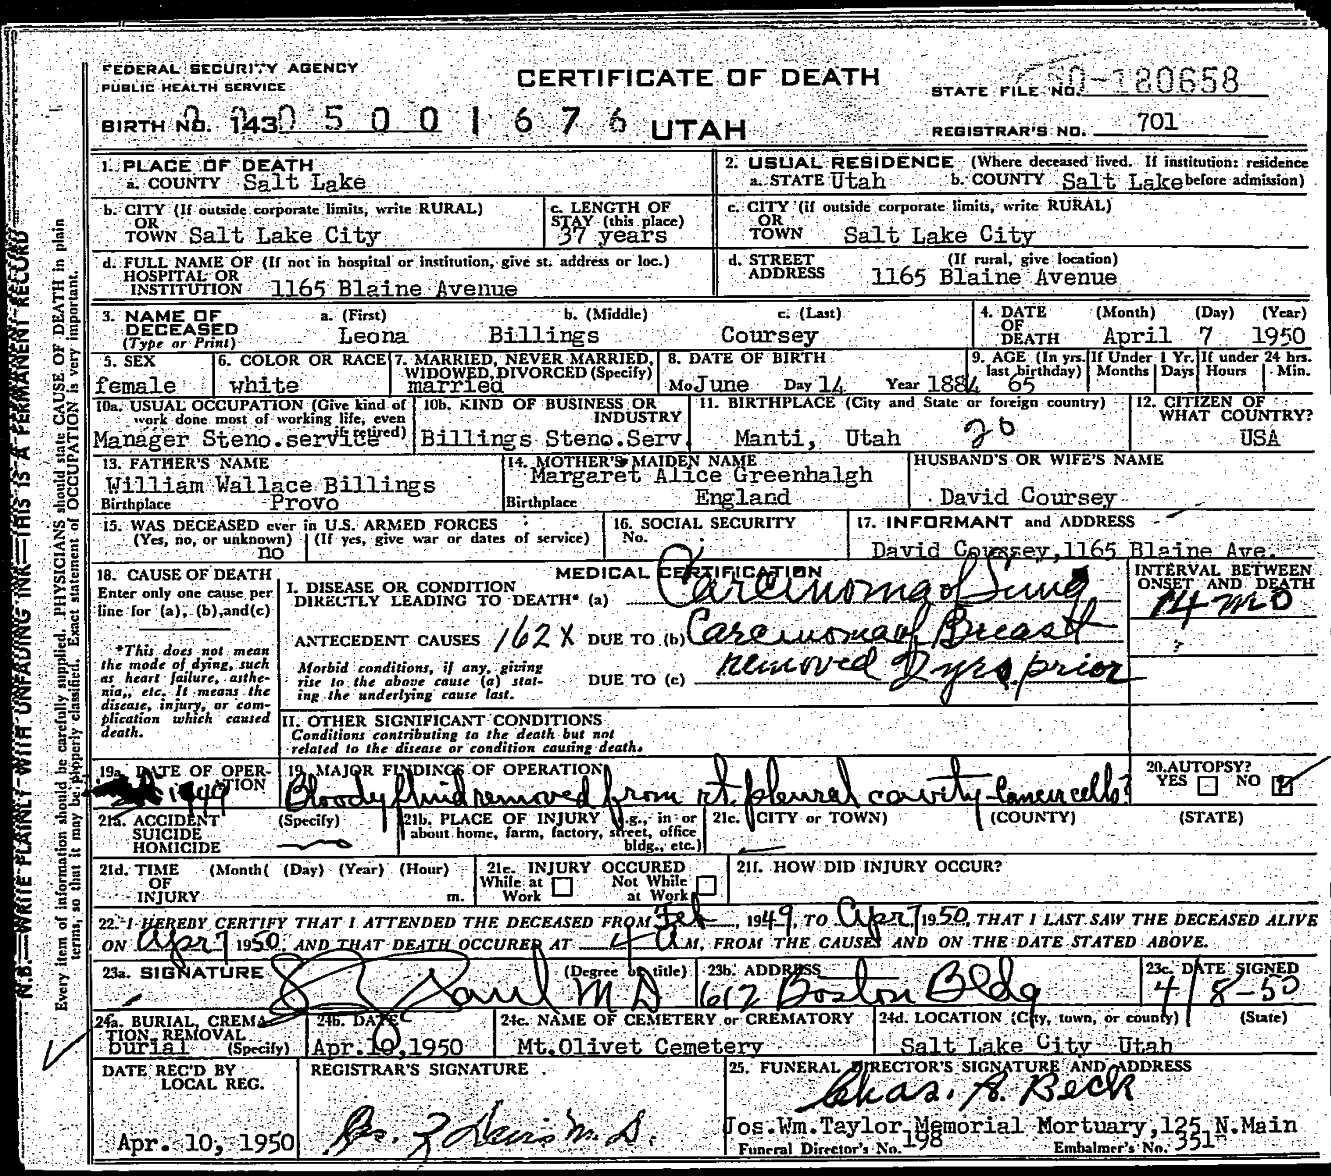 FEDERAL SECURITY AGENCY
PUBLIC HEALTH SERVICE
CERTIFICATE OF DEATH
STATE FILE NO. 50-180658
BIRTH NO. 143 0 5 0 0 1 6 7 6 UTAH
REGISTRAR'S NO. 701
1. PLACE OF DEATH
a. COUNTY Salt Lake
2. USUAL RESIDENCE (Where deceased lived. If institution: residence before admission)
a. STATE Utah b. COUNTY Salt Lake
b. CITY (If outside corporate limits, write RURAL)
OR
TOWN Salt Lake City
c. LENGTH OF
STAY (this place)
37 years
c. CITY (if outside corporate limits, write RURAL)
OR
TOWN Salt Lake City
d. FULL NAME OF (If not in hospital or institution, give st. address or loc.)
HOSPITAL OR
INSTITUTION 1165 Blaine Avenue
d. STREET (If rural, give location)
ADDRESS 1165 Blaine Avenue
3. NAME OF DECEASED
(Type or Print)
a. (First) b. (Middle) c. (Last)
Leona Billings Coursey
4. DATE OF DEATH (Month) (Day) (Year)
April 7 1950
5. SEX
female
6. COLOR OR RACE
white
7. MARRIED, NEVER MARRIED,
WIDOWED, DIVORCED (Specify)
married
8. DATE OF BIRTH
Mo June Day 14 Year 1884
9. AGE (In yrs. last birthday) 65
If Under 1 Yr. Months Days
If under 24 hrs. Hours Min.
10a. USUAL OCCUPATION (Give kind of
work done most of working life, even
if retired)
Manager Steno. service
10b. KIND OF BUSINESS OR
INDUSTRY
Billings Steno. Serv.
11. BIRTHPLACE (City and State or foreign country)
Manti, Utah 26
12. CITIZEN OF
WHAT COUNTRY?
USA
13. FATHER'S NAME
William Wallace Billings
Birthplace Provo
14. MOTHER'S MAIDEN NAME
Margaret Alice Greenhalgh
Birthplace England
HUSBAND'S OR WIFE'S NAME
David Coursey
15. WAS DECEASED ever in U.S. ARMED FORCES
(Yes, no, or unknown) (If yes, give war or dates of service)
no
16. SOCIAL SECURITY
No.
17. INFORMANT and ADDRESS
David Coursey, 1165 Blaine Ave.
18. CAUSE OF DEATH
Enter only one cause per
line for (a), (b), and (c)
*This does not mean
the mode of dying, such
as heart failure, asthe-
nia,, etc. It means the
disease, injury, or com-
plication which caused
death.
MEDICAL CERTIFICATION
I. DISEASE OR CONDITION
DIRECTLY LEADING TO DEATH* (a) Carcinoma of Lung
ANTECEDENT CAUSES 162X DUE TO (b) Carcinoma of Breast
Morbid conditions, if any, giving
rise to the above cause (a) stat-
ing the underlying cause last.
DUE TO (c) removed 2 yrs. prior
INTERVAL BETWEEN
ONSET AND DEATH
14 mo
?
II. OTHER SIGNIFICANT CONDITIONS
Conditions contributing to the death but not
related to the disease or condition causing death.
19a. DATE OF OPER-
ATION
1949
19. MAJOR FINDINGS OF OPERATION
Bloody fluid removed from rt. pleural cavity - cancer cells?
20. AUTOPSY?
YES NO
21a. ACCIDENT
SUICIDE
HOMICIDE
(Specify)
no
21b. PLACE OF INJURY (e.g., in or
about home, farm, factory, street, office
bldg., etc.)
21c. (CITY or TOWN) (COUNTY) (STATE)
21d. TIME OF INJURY (Month( (Day) (Year) (Hour)
m.
21e. INJURY OCCURED
While at Work Not While at Work
21f. HOW DID INJURY OCCUR?
22. I HEREBY CERTIFY THAT I ATTENDED THE DECEASED FROM Feb, 1949, TO Apr 7 1950, THAT I LAST SAW THE DECEASED ALIVE
ON Apr 7 1950, AND THAT DEATH OCCURED AT 4 A M, FROM THE CAUSES AND ON THE DATE STATED ABOVE.
23a. SIGNATURE (Degree or title)
M D
23b. ADDRESS
612 Boston Bldg
23c. DATE SIGNED
4/8-50
24a. BURIAL, CREMA-
TION, REMOVAL
burial (Specify)
24b. DATE
Apr. 10, 1950
24c. NAME OF CEMETERY or CREMATORY
Mt. Olivet Cemetery
24d. LOCATION (City, town, or county) (State)
Salt Lake City Utah
DATE REC'D BY
LOCAL REG.
Apr. 10, 1950
REGISTRAR'S SIGNATURE
M. D.
25. FUNERAL DIRECTOR'S SIGNATURE AND ADDRESS
Chas. A. Beck
Jos. Wm. Taylor Memorial Mortuary, 125 N. Main
Funeral Director's No. 198 Embalmer's No. 351
N.B.—WRITE PLAINLY WITH UNFADING INK—THIS IS A PERMANENT RECORD
Every item of information should be carefully supplied. PHYSICIANS should state CAUSE OF DEATH in plain
terms, so that it may be properly classified. Exact statement of OCCUPATION is very important.